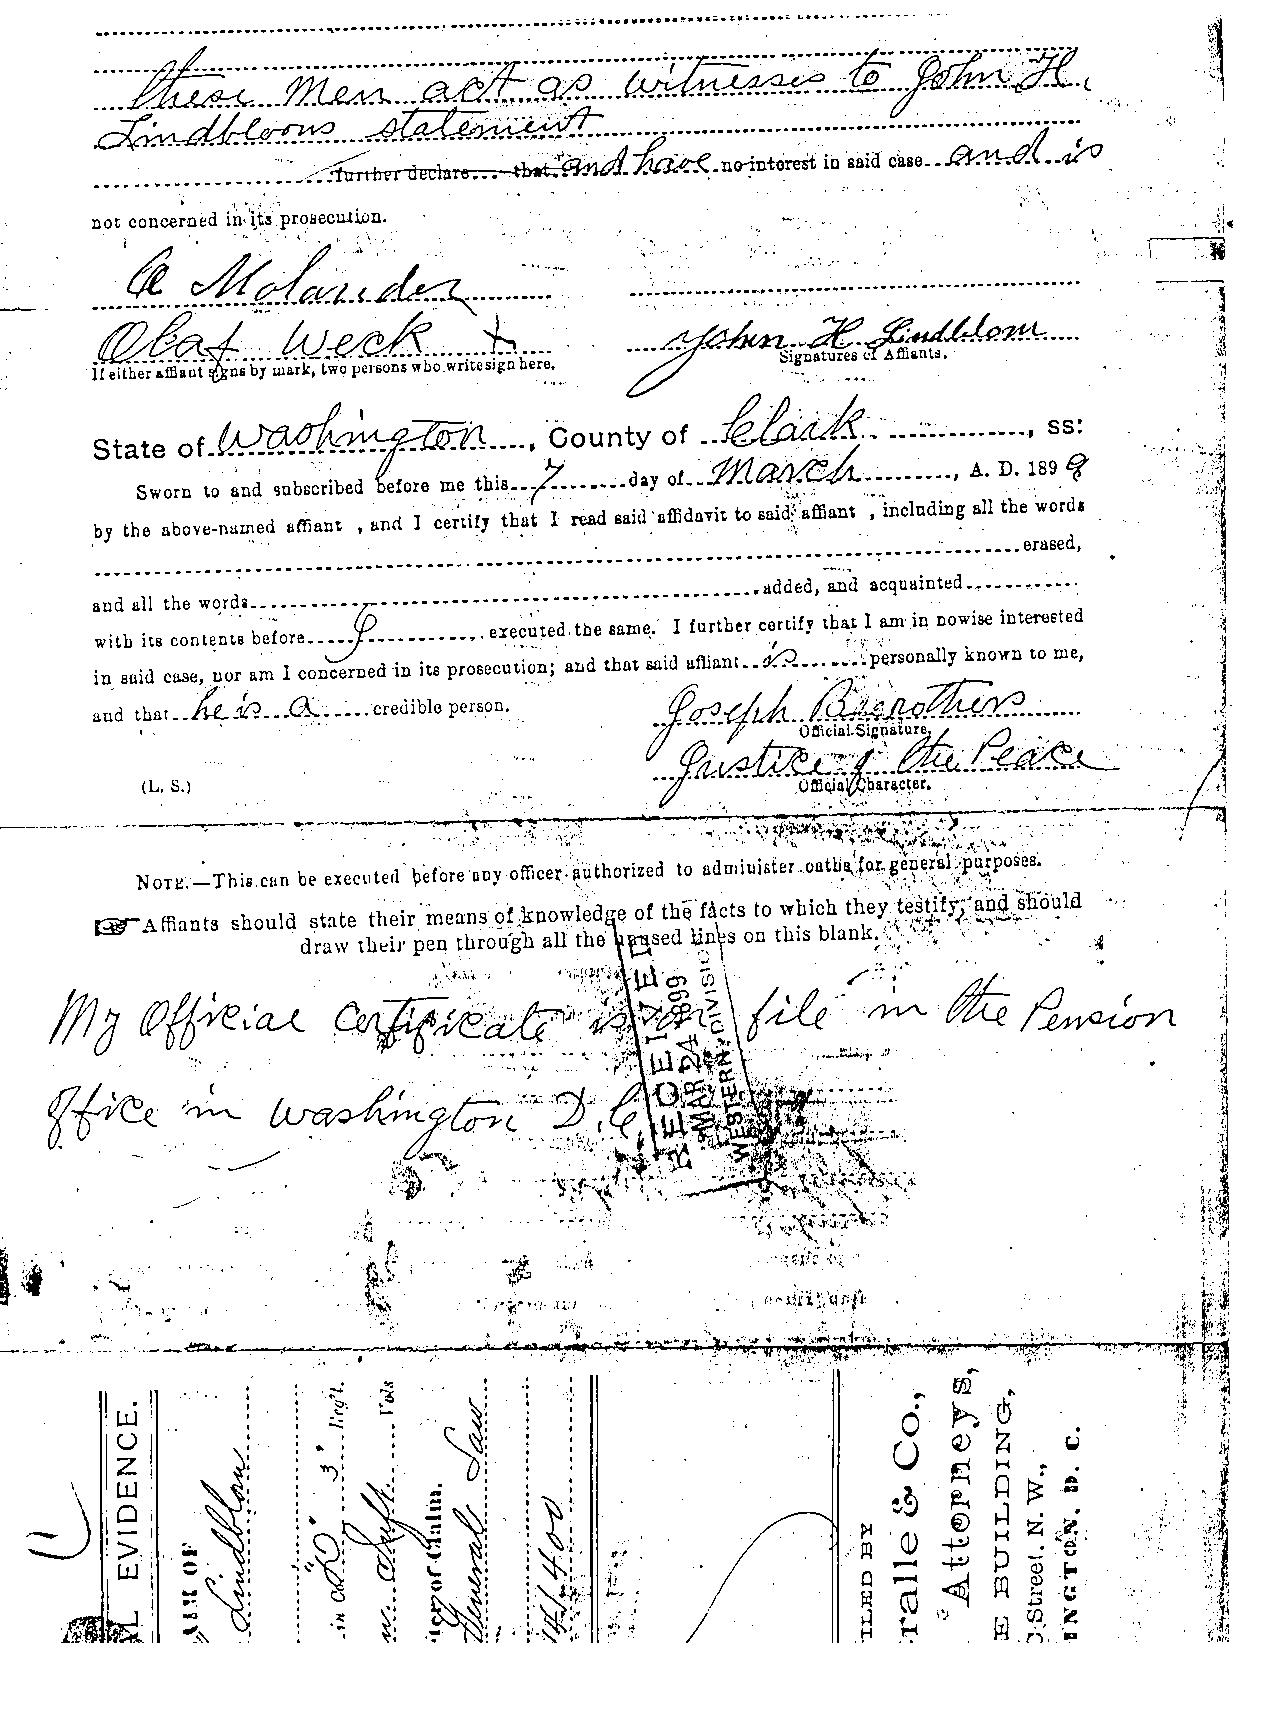 these men act as witnesses to John H.
Lindbloons statement
further declare that and have no interest in said case and is
not concerned in its prosecution.
A Molander
Olaf Weck X
John H Lindblom
If either affiant signs by mark, two persons who write sign here.
Signatures of Affiants.
State of Washington, County of Clark, ss:
Sworn to and subscribed before me this 7 day of March, A. D. 1899
by the above-named affiant , and I certify that I read said affidavit to said affiant , including all the words
erased,
and all the words added, and acquainted
with its contents before executed the same. I further certify that I am in nowise interested
in said case, nor am I concerned in its prosecution; and that said affiant is personally known to me,
and that he is a credible person.
Joseph
Official Signature.
Justice of the Peace
Official Character.
(L. S.)
NOTE.—This can be executed before any officer authorized to administer oaths for general purposes.
☞ Affiants should state their means of knowledge of the facts to which they testify, and should
draw their pen through all the unused lines on this blank.
My Official Certificate is on file in the Pension
Office in Washington D.C.
RECEIVED
MAR 24 1899
WESTERN DIVISION
EVIDENCE.
OF
Lindblom
in "D" 3" Reg't.
Vols
of Claim.
General Law
FILED BY
ralle & Co.,
Attorneys,
E BUILDING,
Street, N. W.,
INGTON, D. C.